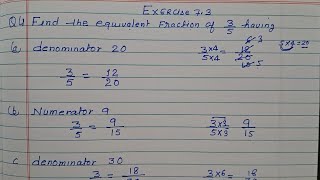 Exercise 7.3
Q4 Find the equivalent fraction of 3/5 having
(a) denominator 20
3/5 = 12/20
3×4/5×4 = 12/20
5×4=20
(b) Numerator 9
3/5 = 9/15
3×3/5×3 9/15
c denominator 30
3 = 18
3×6 = 18